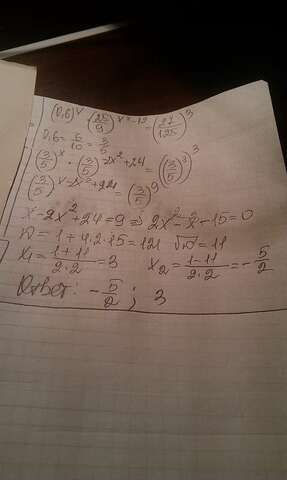 (0,6)^x · (25/9)^{x²-12} = (27/125)^3
0,6 = 6/10 = 3/5
(3/5)^x · (3/5)^{-2x²+24} = ((3/5)^3)^3
(3/5)^{x-2x²+24} = (3/5)^9
x-2x²+24=9 ⇒ 2x²-x-15=0
D=1+4·2·15=121 √D=11
x₁=(1+11)/(2·2)=3 x₂=(1-11)/(2·2)=-5/2
Ответ: -5/2; 3